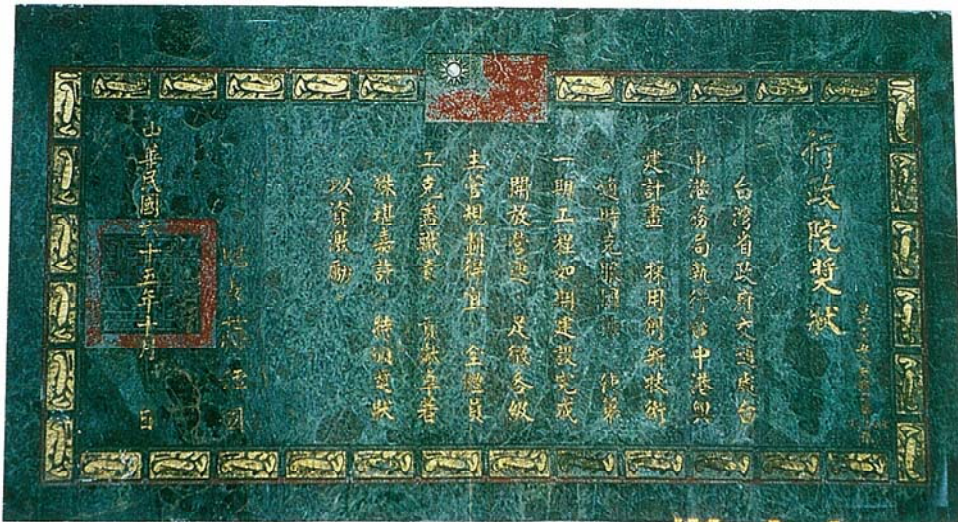 行政院獎狀
台灣省政府交通處台
中港務局執行台中港興
建計畫 採用創新技術
適時克服困難 使第
一期工程如期建設完成
開放營運 足徵各級
主管規劃得宜 全體員
工克盡職責 貢獻卓著
殊堪嘉許 特頒獎狀
以資激勵
蔣經國
中華民國六十五年十月 日